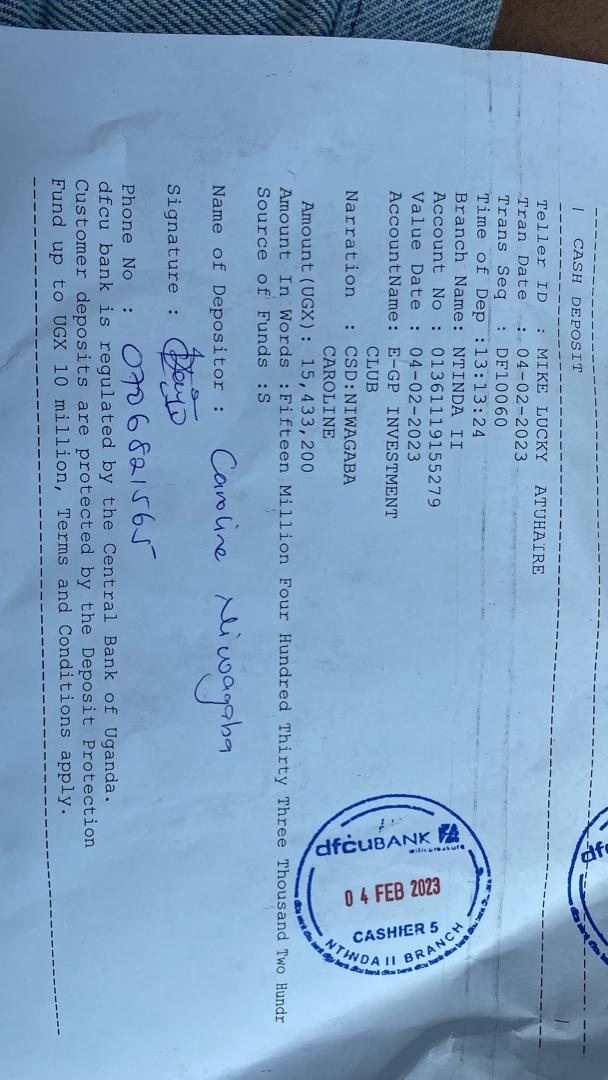 | CASH DEPOSIT |
Teller ID : MIKE LUCKY ATUHAIRE
Tran Date : 04-02-2023
Trans Seq : DF10060
Time of Dep :13:13:24
Branch Name: NTINDA II
Account No : 01361119155279
Value Date : 04-02-2023
AccountName: E-GP INVESTMENT
CLUB
Narration : CSD:NIWAGABA
CAROLINE
Amount(UGX): 15,433,200
Amount In Words :Fifteen Million Four Hundred Thirty Three Thousand Two Hundr
Source of Funds :S
Name of Depositor : Caroline Niwagaba
Signature :
Phone No : 0706821565
dfcu bank is regulated by the Central Bank of Uganda.
Customer deposits are protected by the Deposit Protection
Fund up to UGX 10 million, Terms and Conditions apply.
dfcu BANK
04 FEB 2023
CASHIER 5
NTINDA II BRANCH
dfc